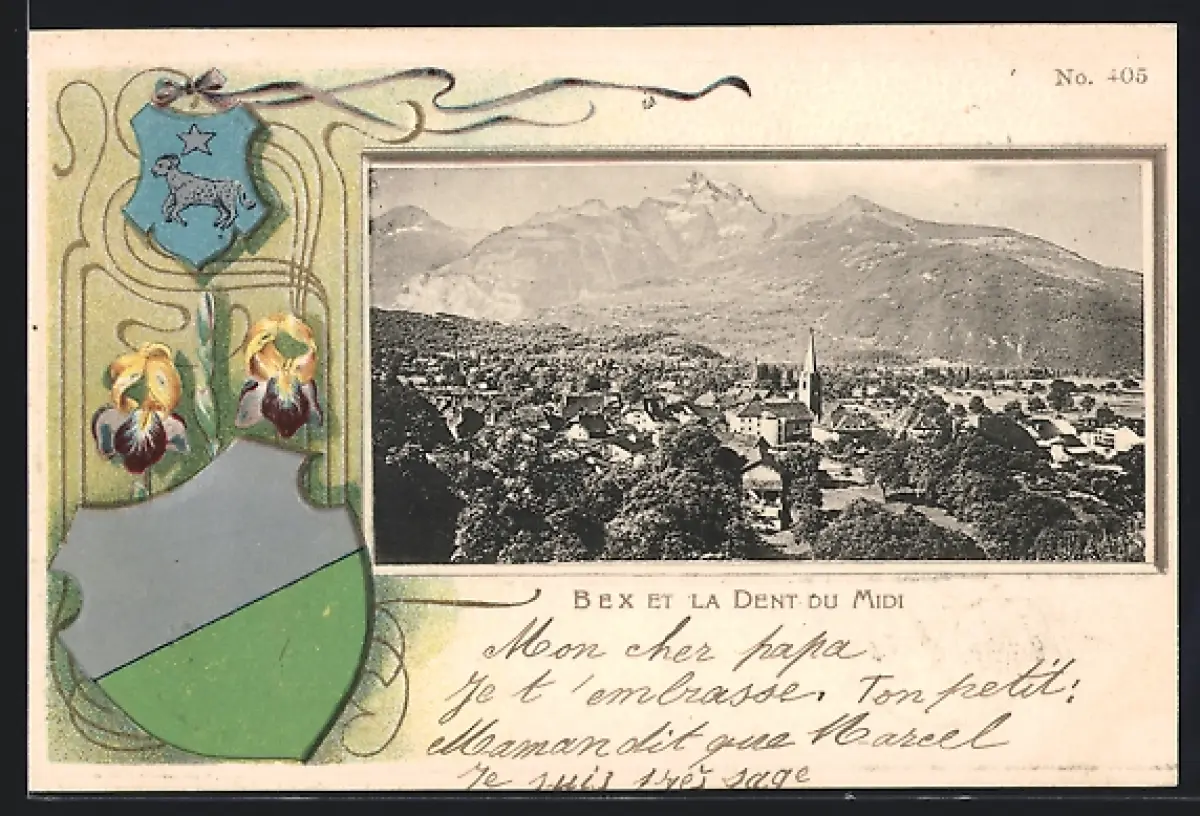 No. 405
BEX ET LA DENT DU MIDI
Mon cher papa
Je t'embrasse. Ton petit:
Maman dit que Marcel
Je suis très sage